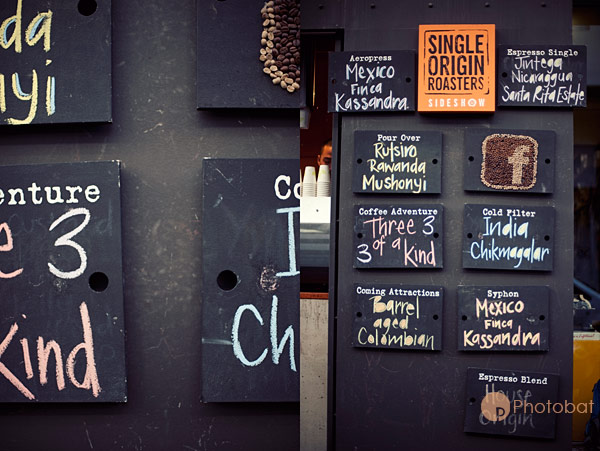 anda
nyi
enture
e 3
Kind
Co
I
Ch
SINGLE
ORIGIN
ROASTERS
SIDESHOW
Aeropress
Mexico
Finca
Kassandra
Espresso Single
Jintega
Nicaraggua
Santa Rita Estate
Pour Over
Rutsiro
Rawanda
Mushonyi
f
Coffee Adventure
Three 3
3 of a Kind
Cold Filter
India
Chikmagalar
Coming Attractions
Barrel
aged
Colombian
Syphon
Mexico
Finca
Kassandra
Espresso Blend
House
Origin
P Photobat